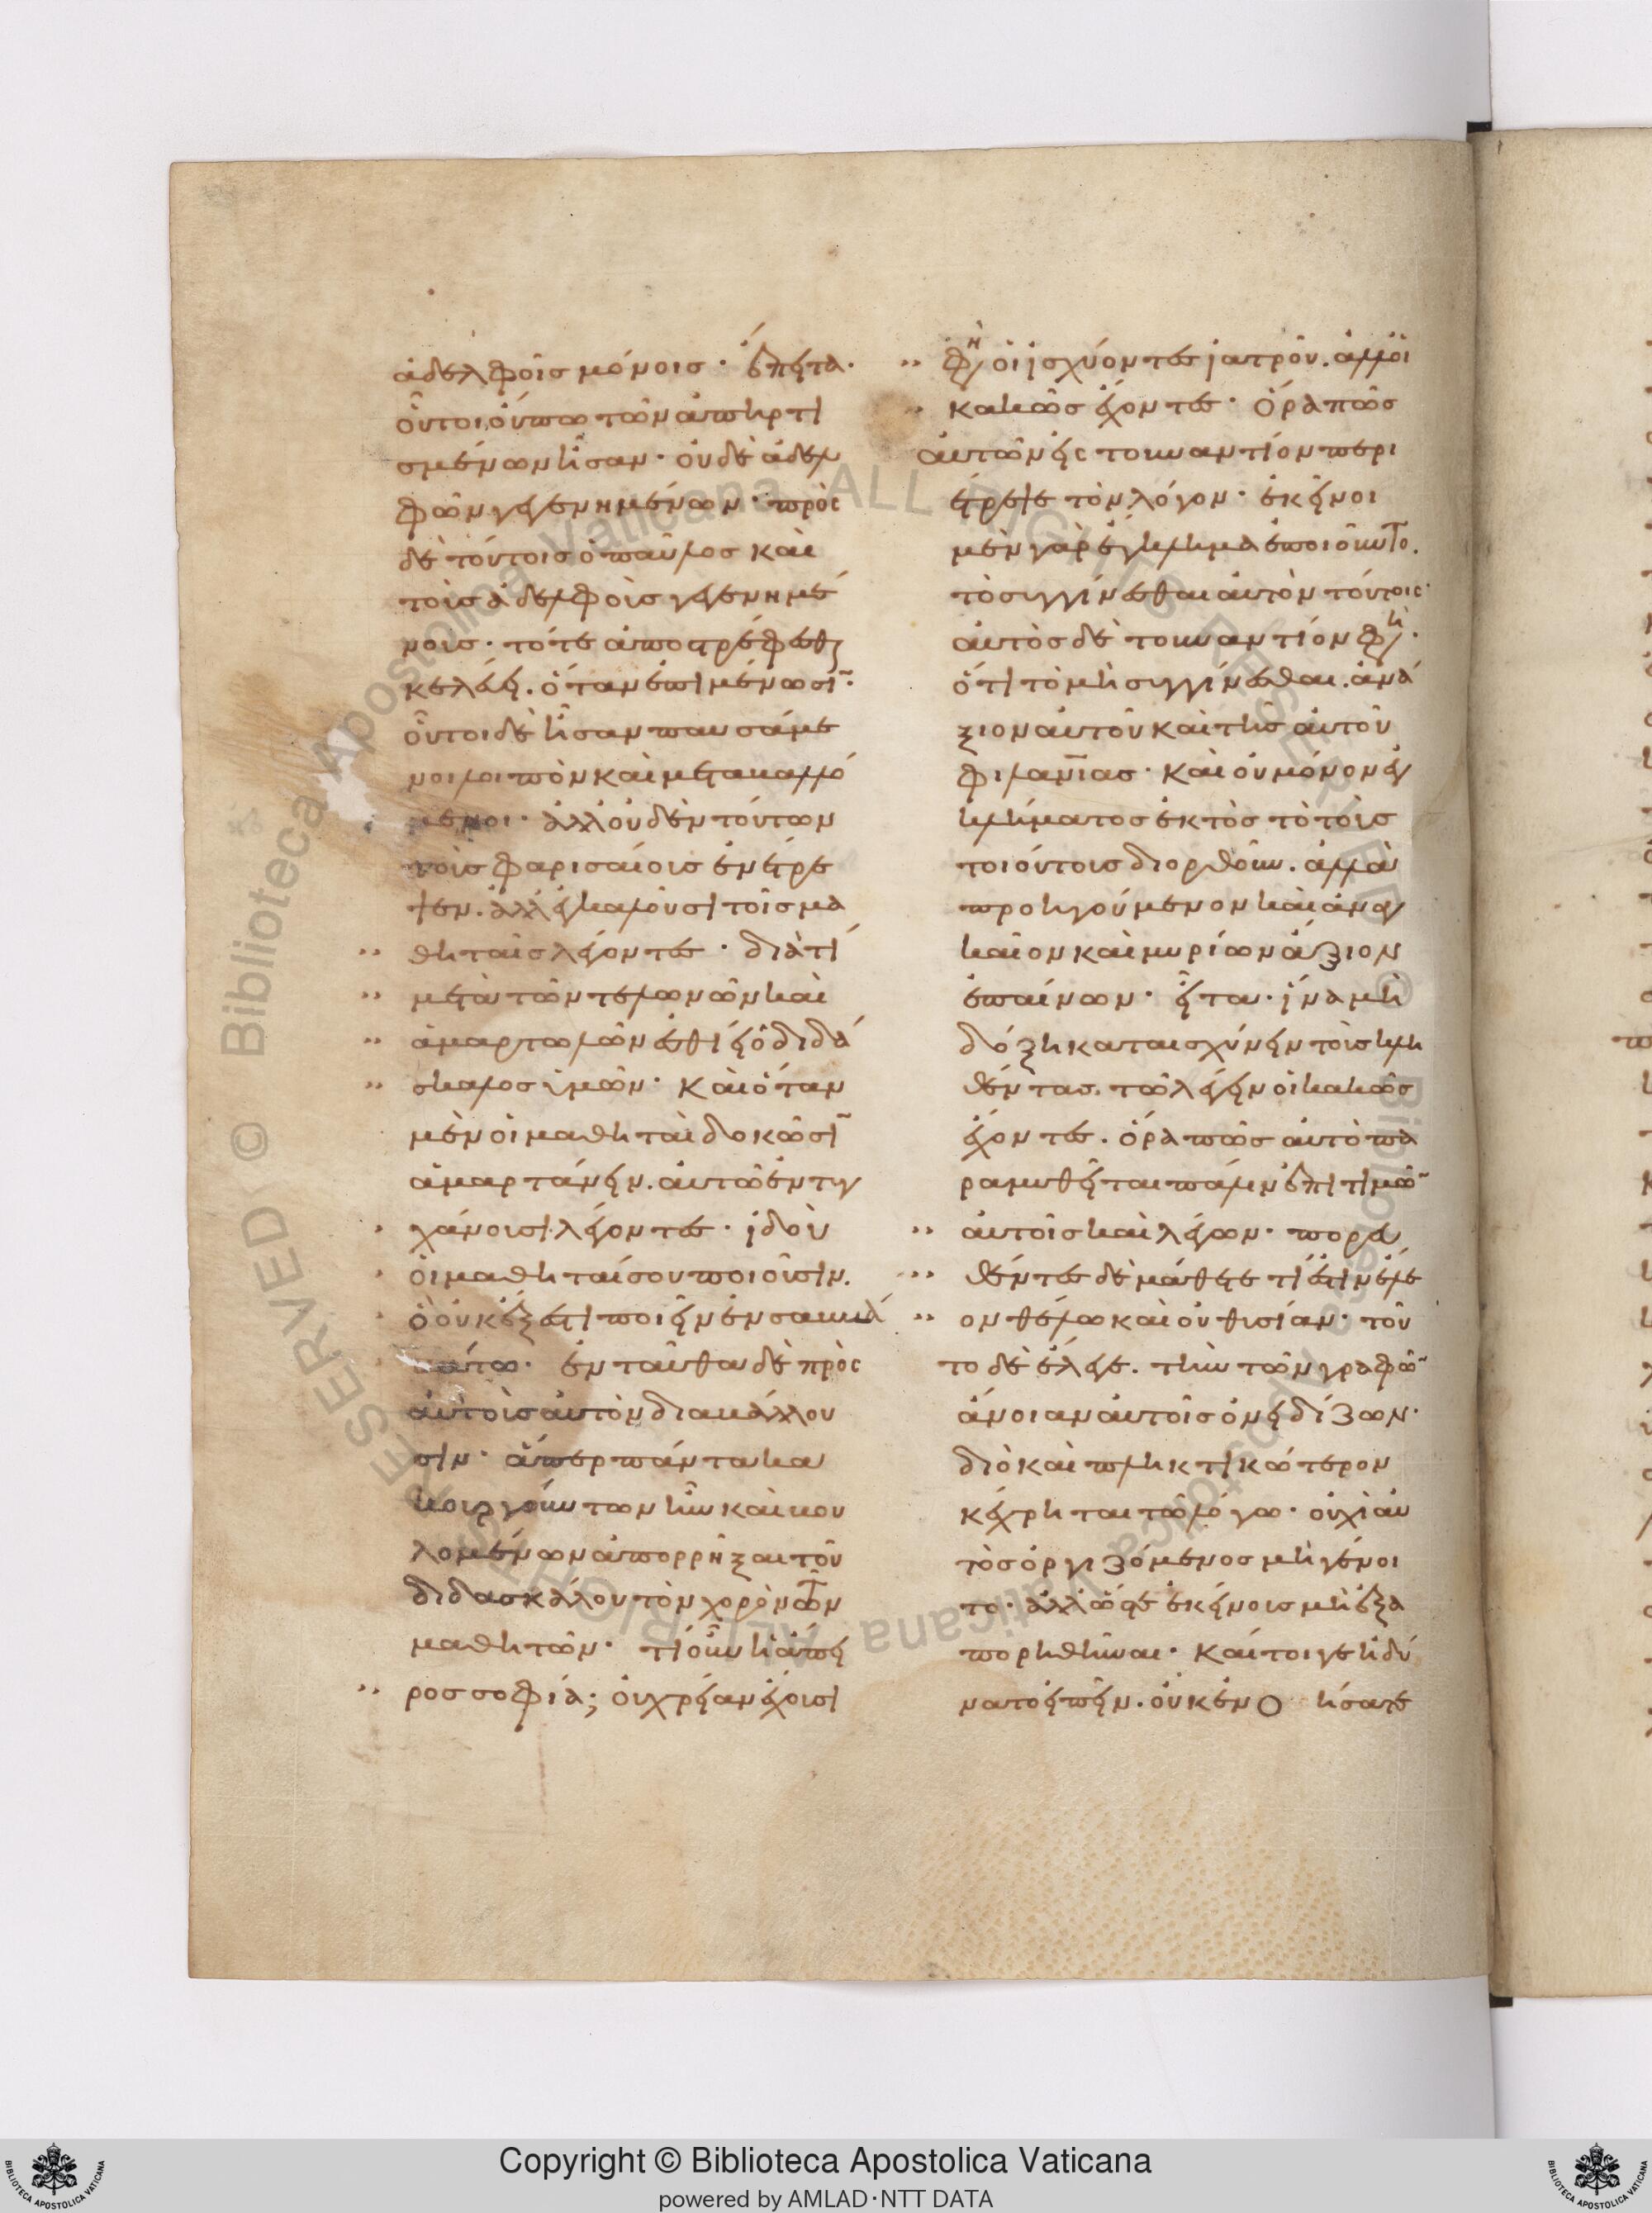 ἀδελφοῖς μόνοις· ἔπειτα·
οὗτοι οὔπω τῶν ἀπηρτι
σμένων ἦσαν· οὐδὲ ἀδελ
φῶν γεγενημένων· πρὸς
δὲ τούτοις ὁ παῦλος καὶ
τοὺς ἀδελφοὺς γεγενημέ
νους· τότε ἀποστρέφεσθαι
κελεύει. ὅταν ἐπιμένωσι·
οὗτοι δὲ ἦσαν παυσάμε
νοι λοιπὸν καὶ μεταβαλλό
μενοι· ἀλλ οὐδὲν τούτων
τοὺς φαρισαίους ἐνέτρε
ψεν. ἀλλ ἐγκαλοῦσι τοῖς μα
θηταῖς λέγοντες· διὰ τί
μετὰ τῶν τελωνῶν καὶ
ἁμαρτωλῶν ἐσθίει ὁ διδά
σκαλος ὑμῶν· καὶ ὅταν
μὲν οἱ μαθηταὶ δοκῶσι
ἁμαρτάνειν. αὐτῷ ἐντυγ
χάνουσι λέγοντες· ἰδοὺ
οἱ μαθηταί σου ποιοῦσιν.
ὃ οὐκ ἔξεστι ποιεῖν ἐν σαββά
βάτω· ἐνταῦθα δὲ πρὸς
αὐτοὺς αὐτὸν διαβάλλου
σιν· ἅπερ πάντα κα
κουργούντων ἦν καὶ βου
λομένων ἀπορρῆξαι τοῦ
διδασκάλου τὸν χορὸν τῶν
μαθητῶν· τί οὖν ἡ ἄπει
ρος σοφία; οὐ χρείαν ἔχουσι
φη οἱ ἰσχύοντες ἰατροῦ. ἀλλ οἱ
κακῶς ἔχοντες· ὅρα πῶς
αὐτῶν εἰς τουναντίον περι
έτρεψε τὸν λόγον· ἐκεῖνοι
μὲν γὰρ ἔγκλημα ἐποιοῦντο.
τὸ συγγίνεσθαι αὐτὸν τούτοις·
αὐτὸς δὲ τουναντίον φη·
ὅτι τὸ μὴ συγγίνεσθαι. ἀνά
ξιον αὐτοῦ καὶ τῆς αὐτοῦ
φιλανίας· καὶ οὐ μόνον ἐγ
κλήματος ἐκτὸς τὸ τοὺς
τοιούτους διορθοῦν. ἀλλὰ
προηγούμενον καὶ ἀναγ
καῖον καὶ μυρίων ἄξιον
ἐπαίνων· εἶτα· ἵνα μὴ
δόξῃ καταισχύνειν τοὺς κλη
θέντας. τῷ λέγειν οἱ κακῶς
ἔχοντες. ὅρα πῶς αὐτὸ πα
ραμυθεῖται πάλιν ἐπιτιμῶ
αὐτοῖς καὶ λέγων· πορευ
θέντες δὲ μάθετε τί ἐστιν ἔλε
ον θέλω καὶ οὐ θυσίαν· τοῦ
το δὲ ἔλεγε. τὴν τῶν γραφῶ
ἄνοιαν αὐτοῖς ὀνειδίζων·
διὸ καὶ πληκτικώτερον
κέχρηται τῷ λόγῳ· οὐχὶ αὐ
τὸς ὀργιζόμενος μὴ γένοι
το· ἀλλ ὥστε ἐκείνους μὴ ἐξα
πορηθῆναι· καίτοιγε ἠδύ
νατο εἰπεῖν. οὐκ ἐνο ήσατε